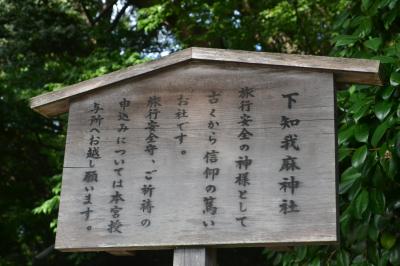 下知我麻神社
旅行安全の神様として
古くから信仰の篤い
お社です。
旅行安全守、ご祈祷の
申込みについては本宮授
与所へお越し願います。